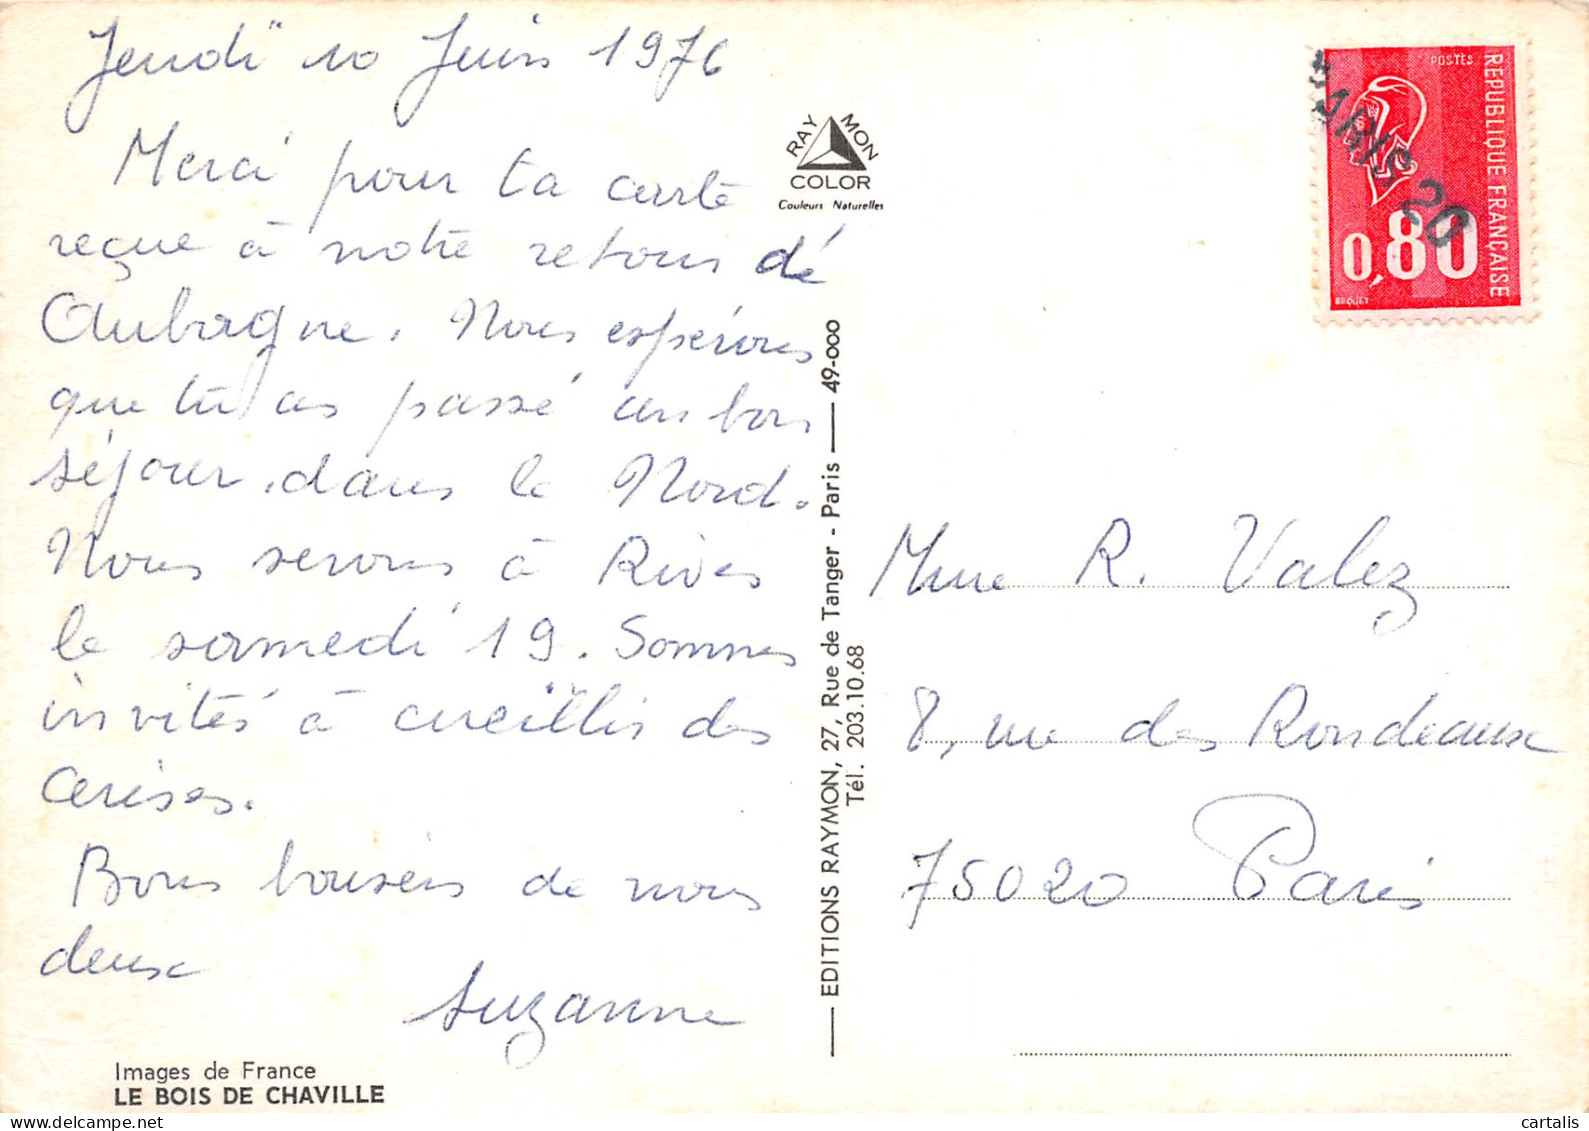 Jeudi 10 Juin 1976
Merci pour ta carte
reçue à notre retour de
Aubagne. Nous espérons
que tu as passé un bon
séjour dans le Nord.
Nous serons à Rives
le samedi 19. Sommes
invités à cueillir des
cerises.
Bons baisers de nous
deux
Suzanne
Images de France
LE BOIS DE CHAVILLE
RAYMON
COLOR
Couleurs Naturelles
EDITIONS RAYMON, 27, Rue de Tanger - Paris — 49-000
Tél. 203.10.68
POSTES
REPUBLIQUE FRANÇAISE
0,80
BEQUET
PARIS 20
Mme R. Valez
8, rue des Rondeaux
75020 Paris
cartalis